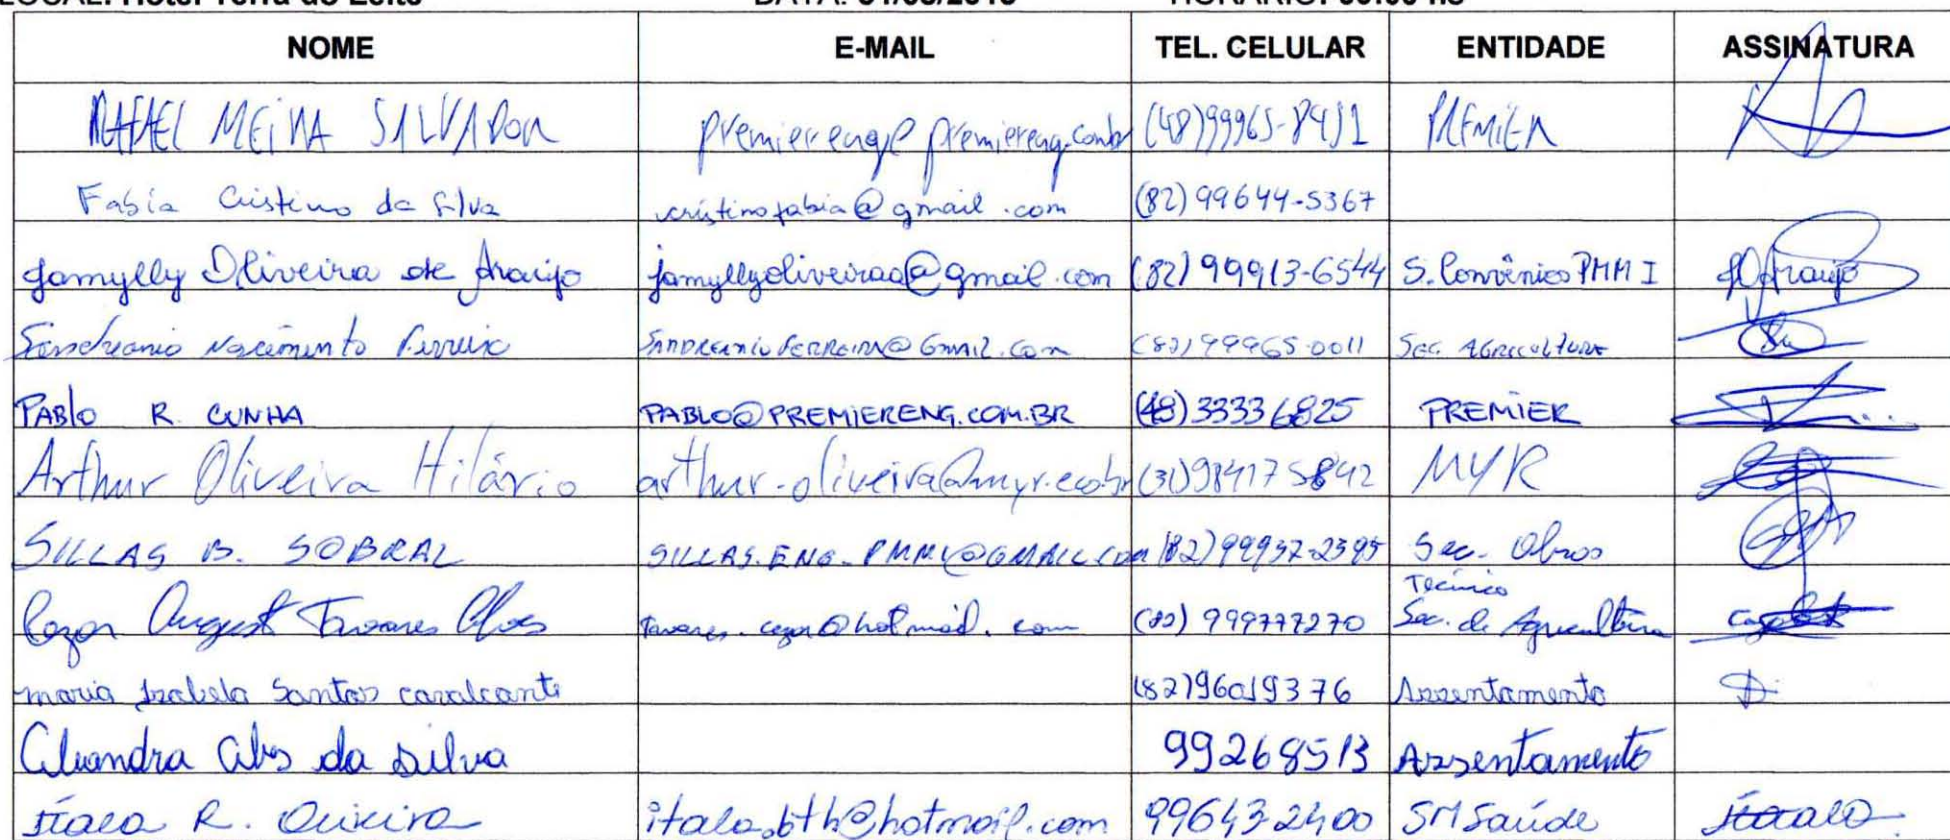 LOCAL: Hotel Terra do Leite DATA: HORÁRIO:
NOME E-MAIL TEL. CELULAR ENTIDADE ASSINATURA
RAFAEL MEIRA SALVADOR premiereng@premiereng.combr (48)99965-8491 PREMIER
Fabia Cristino da Silva cristinofabia@gmail.com (82)99644-5367
Jamylly Oliveira de Araújo jamyllyoliveiraa@gmail.com (82)99913-6544 S. Convênios PMM I JOAraujo
Sandreanio Nascimento Ferreira SANDREANIO FERREIRA@GMAIL.COM (82)99965-0011 SEC. AGRICULTURA
PABLO R. CUNHA PABLO@PREMIERENG.COM.BR (48)33336825 PREMIER
Arthur Oliveira Hilário arthur.oliveira@myr.eco.br (31)984175842 MYR
SILLAS B. SOBRAL SILLAS.ENG.PMMI@GMAIL.COM (82)99937-2395 Sec. Obras
Cezar August Tavares Alves tavares.cezar@hotmail.com (82) 999777270 Técnico Sec. de Agricultura
maria Izabela Santos cavalcante (82)96019376 Assentamento
Alves da Silva 99268513 Assentamento
Ítala R. Oliveira itala.bth@hotmail.com 99643-2400 SM Saúde